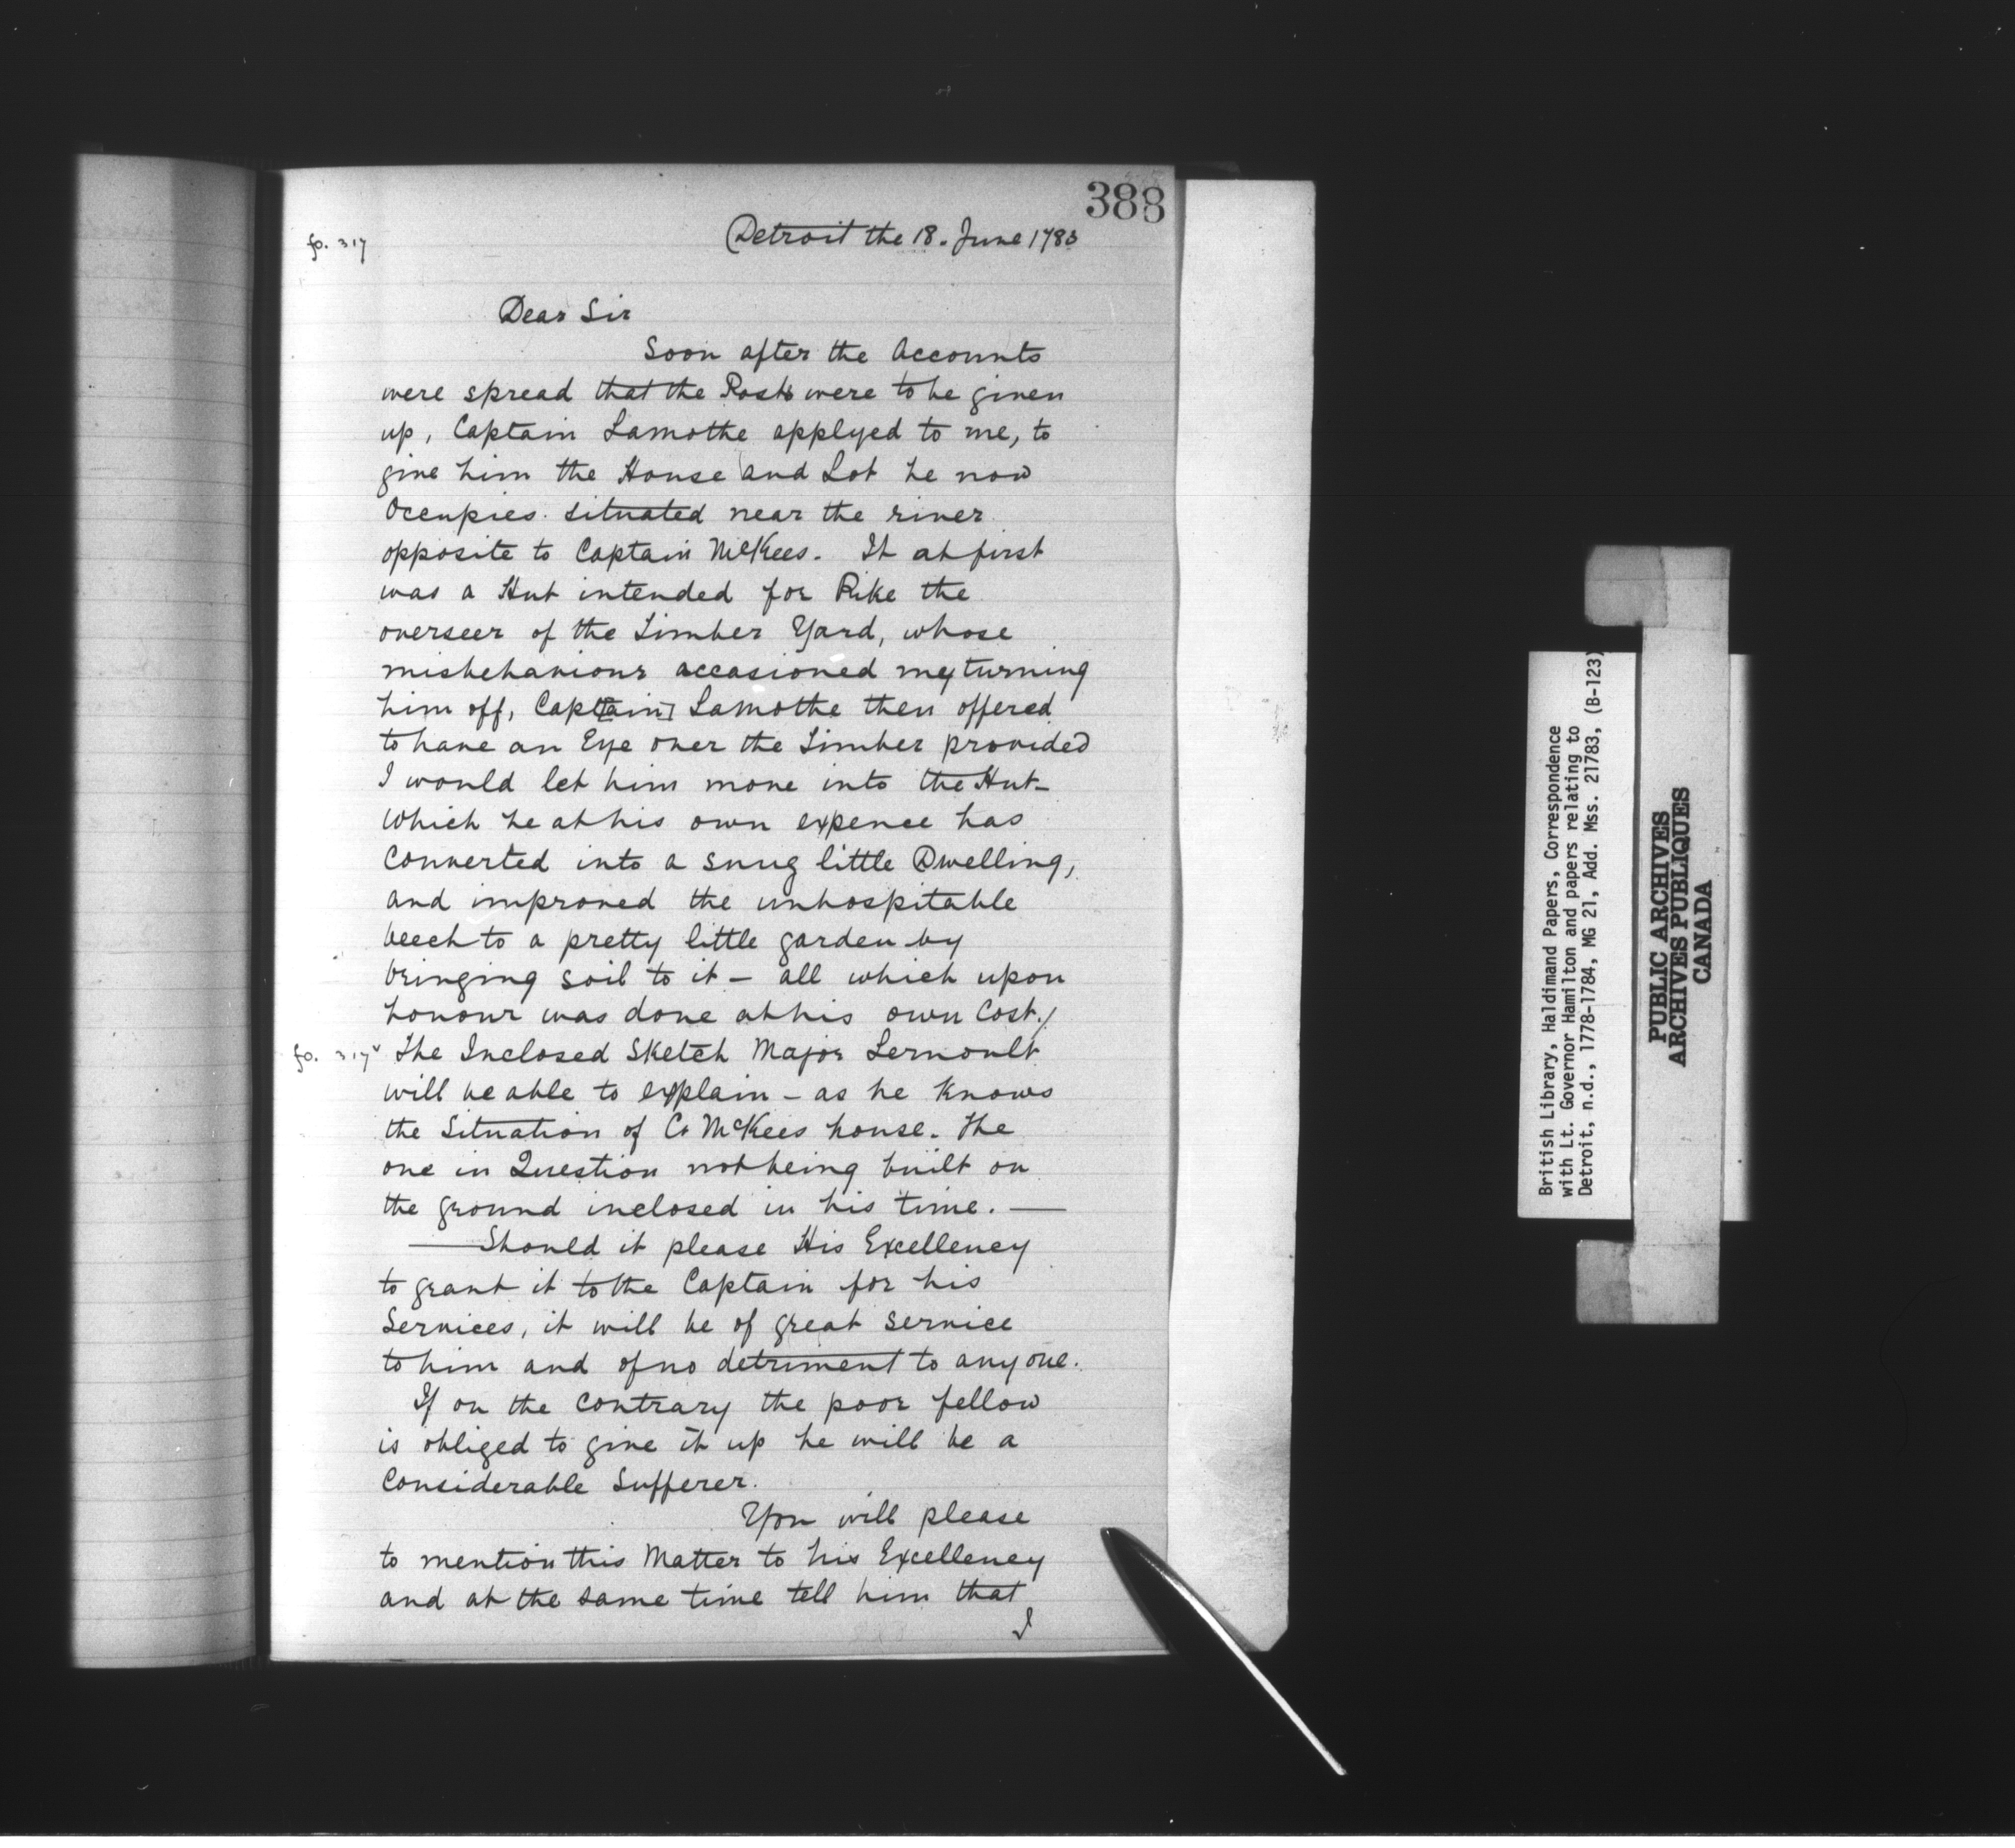 388
fo. 317
Detroit the 18. June 1783
Dear Sir
Soon after the Accounts
were spread that the Posts were to be given
up, Captain Lamothe applyed to me, to
give him the House and Lot he now
Occupies situated near the river
opposite to Captain McKees. It at first
was a Hut intended for Pike the
overseer of the Timber Yard, whose
misbehaviour occasioned my turning
him off, Capt[ain] Lamothe then offered
to have an Eye over the Timber provided
I would let him move into the Hut-
Which he at his own expence has
Converted into a snug little Dwelling,
and improved the unhospitable
beech to a pretty little garden by
bringing soil to it - all which upon
honour was done at his own Cost./
fo. 317v
The Inclosed Sketch Major Lernoult
will be able to explain - as he Knows
the Situation of Ct McKees house. The
one in Question not being built on
the ground inclosed in his time. —
— Should it please His Excellency
to grant it to the Captain for his
Services, it will be of great service
to him and of no detriment to any one.
If on the Contrary the poor fellow
is obliged to give it up he will be a
Considerable Sufferer.
You will please
to mention this Matter to his Excellency
and at the same time tell him that
I
British Library, Haldimand Papers, Correspondence
with Lt. Governor Hamilton and papers relating to
Detroit, n.d., 1778-1784, MG 21, Add. Mss. 21783, (B-123)
PUBLIC ARCHIVES
ARCHIVES PUBLIQUES
CANADA